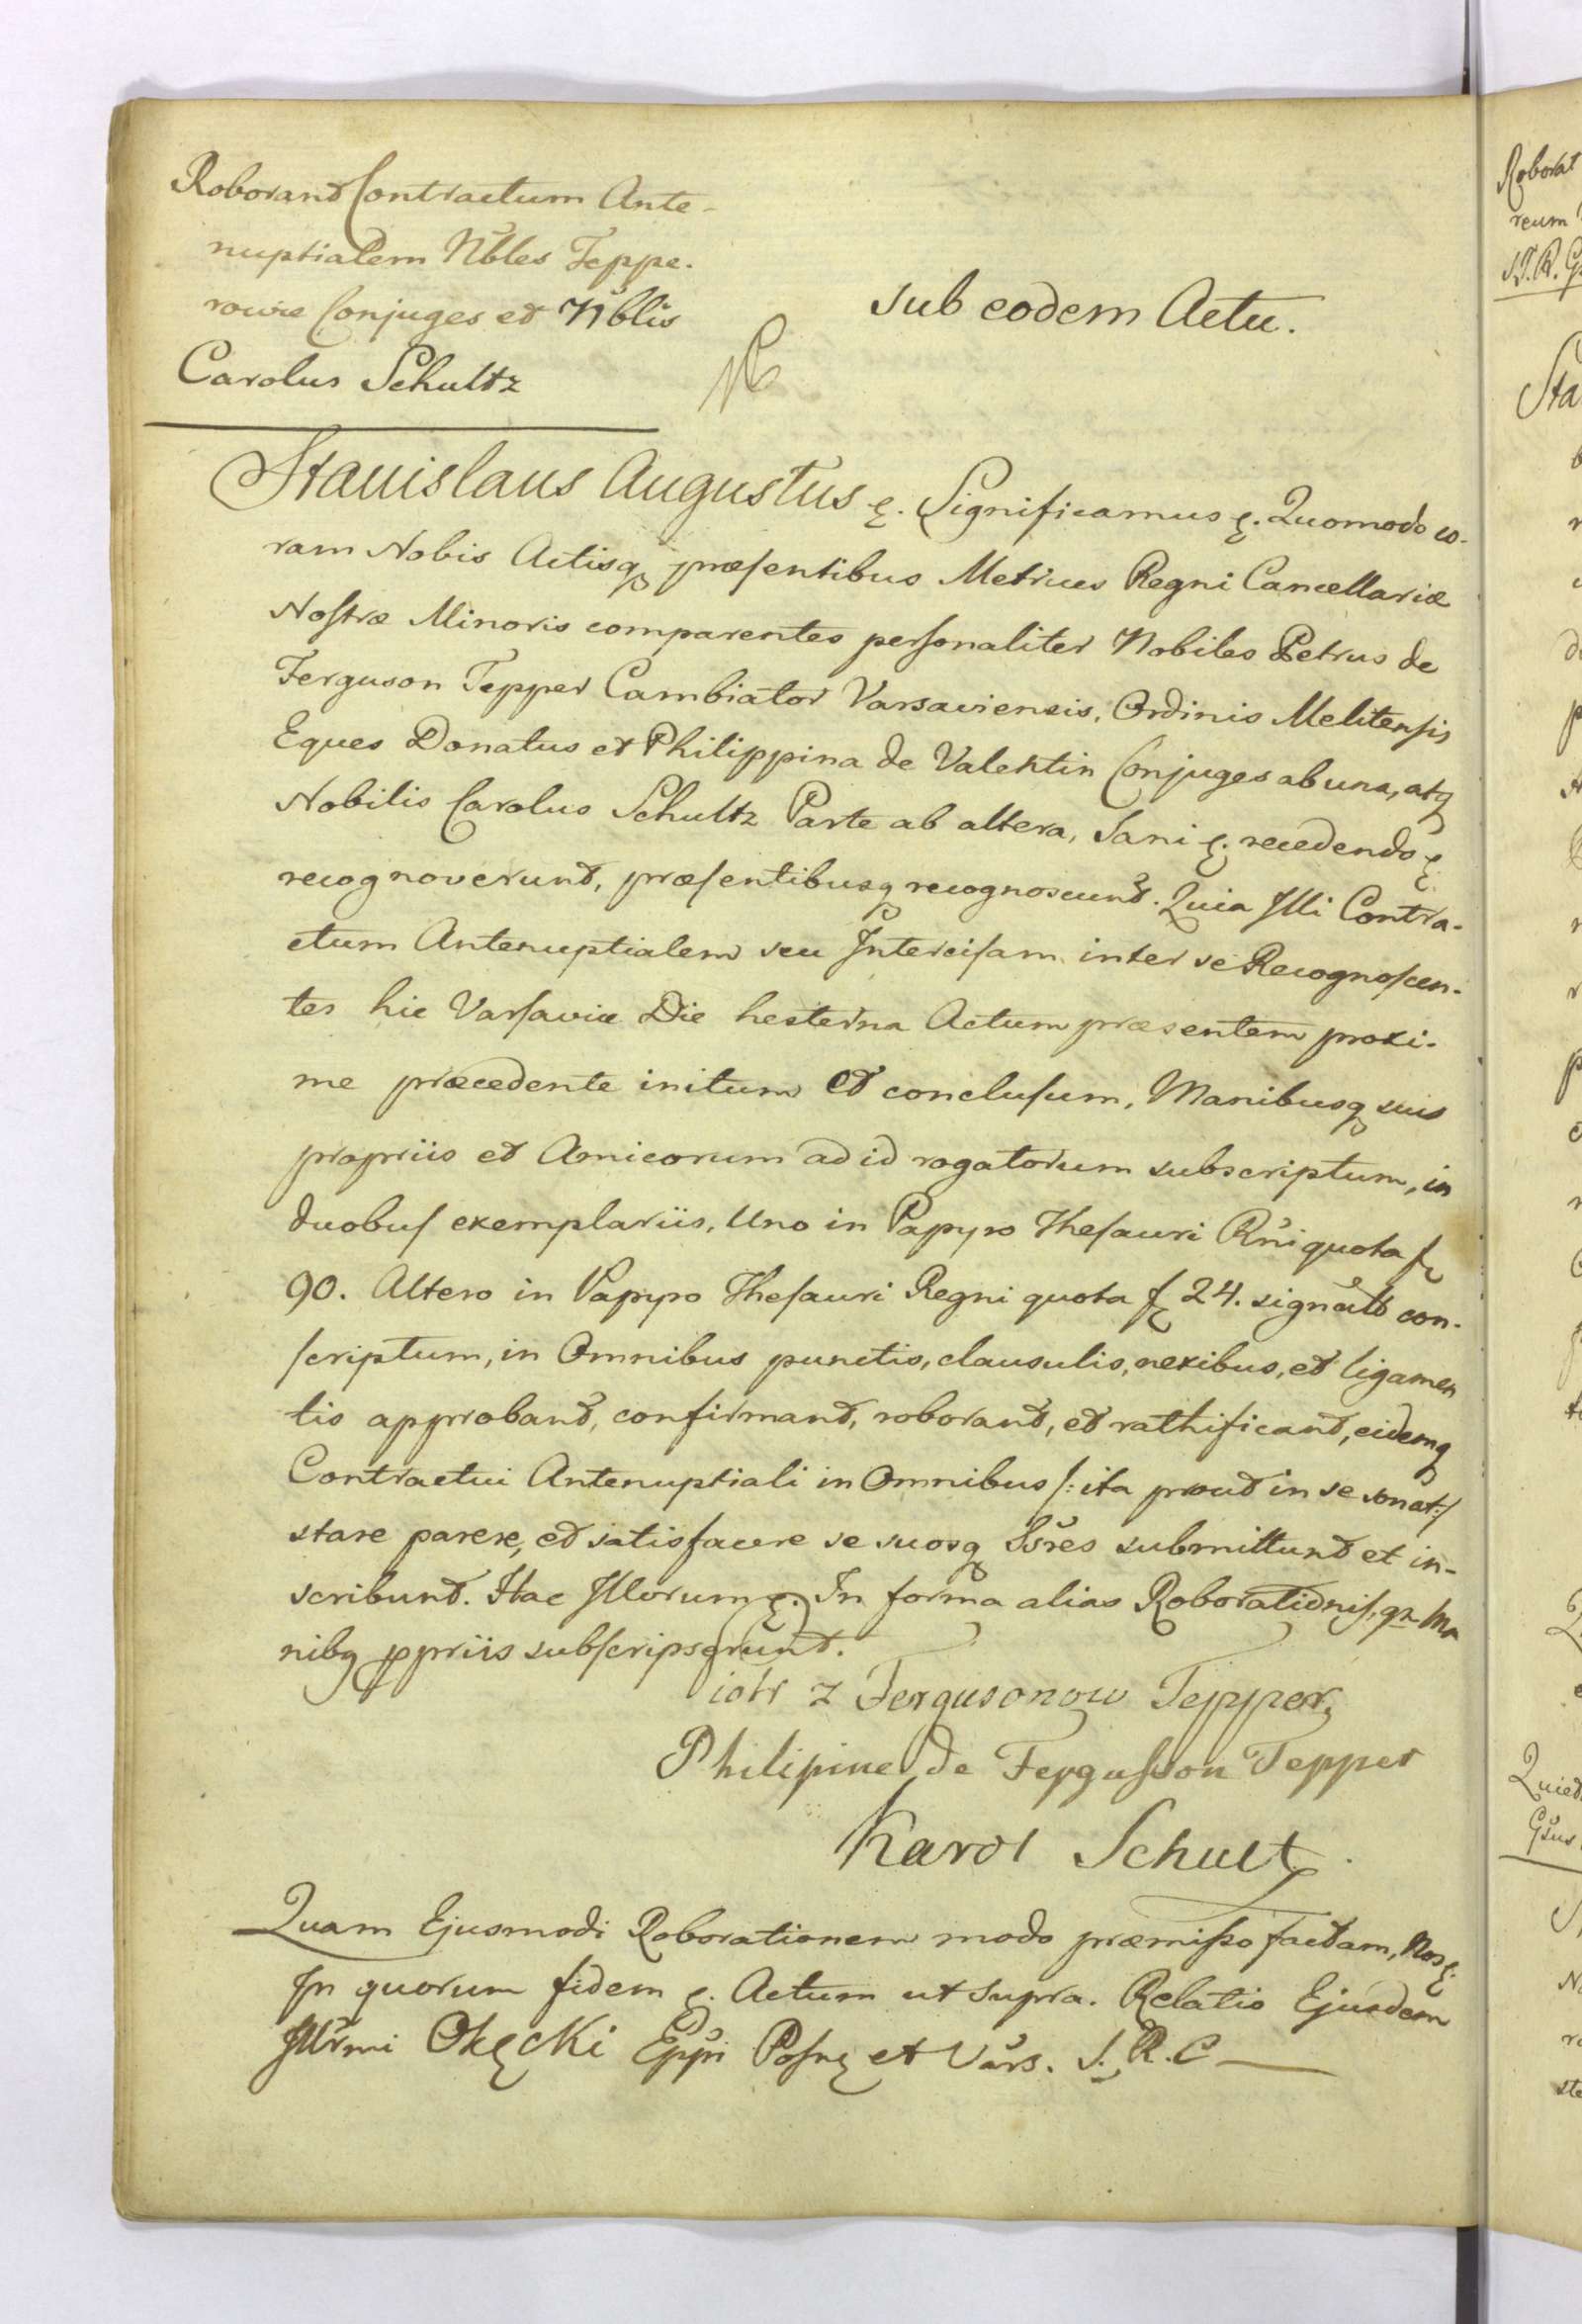 Roborant Contractum Ante-
nuptialem Nbles Teppe-
rowie Conjuges et Nblis
Carolus Schultz
sub eodem Actu.
Stanislaus Augustus ę. Significamus ę. Quomodo co-
ram Nobis Actisq præsentibus Metrices Regni Cancellariæ
Nostræ Minoris comparentes personaliter Nobiles Petrus de
Ferguson Tepper Cambiator Varsaviensis, Ordinis Melitensis
Eques Donatus et Philippina de Valentin Conjuges ab una, atq
Nobilis Carolus Schultz Parte ab altera, Sani ę. recedendo ę
recognoverunt, præsentibusq recognoscunt. Quia Illi Contra-
ctum Antenuptialem seu Intercisam inter se Recognoscen-
tes hic Varsaviæ Die hesterna Actum præsentem proxi-
me præcedente initum et conclusum, Manibusq suis
propriis et Amicorum ad id rogatorum subscriptum, in
duobus exemplariis, Uno in Papyro Thesauri Rni quota f
90. Altero in Papyro Thesauri Regni quota f 24. signato con-
scriptum, in Omnibus punctis, clausulis, nexibus, et ligamen
tis approbant, confirmant, roborant, et rathificant, eidemq
Contractui Antenuptiali in Omnibus /: ita prout in se sonat :/
stare parere, et satisfacere se suosq Ssres submittunt et in-
scribunt. Hac Illorum ę. In forma alias Roborationis, qz Ma
nibq ppriis subscripserunt.
Piotr z Fergusonow Tepper
Philipine de Fergusson Tepper
Karol Schultz
Quam Ejusmodi Roborationem modo præmisso factam, Nos ę.
In quorum fidem ę. Actum ut supra. Relatio Ejusdem
Illrmi Okęcki Eppi Posn et Vars. S. R. C
Roborat
reum
S. R.
Sta
Quied
Gsus